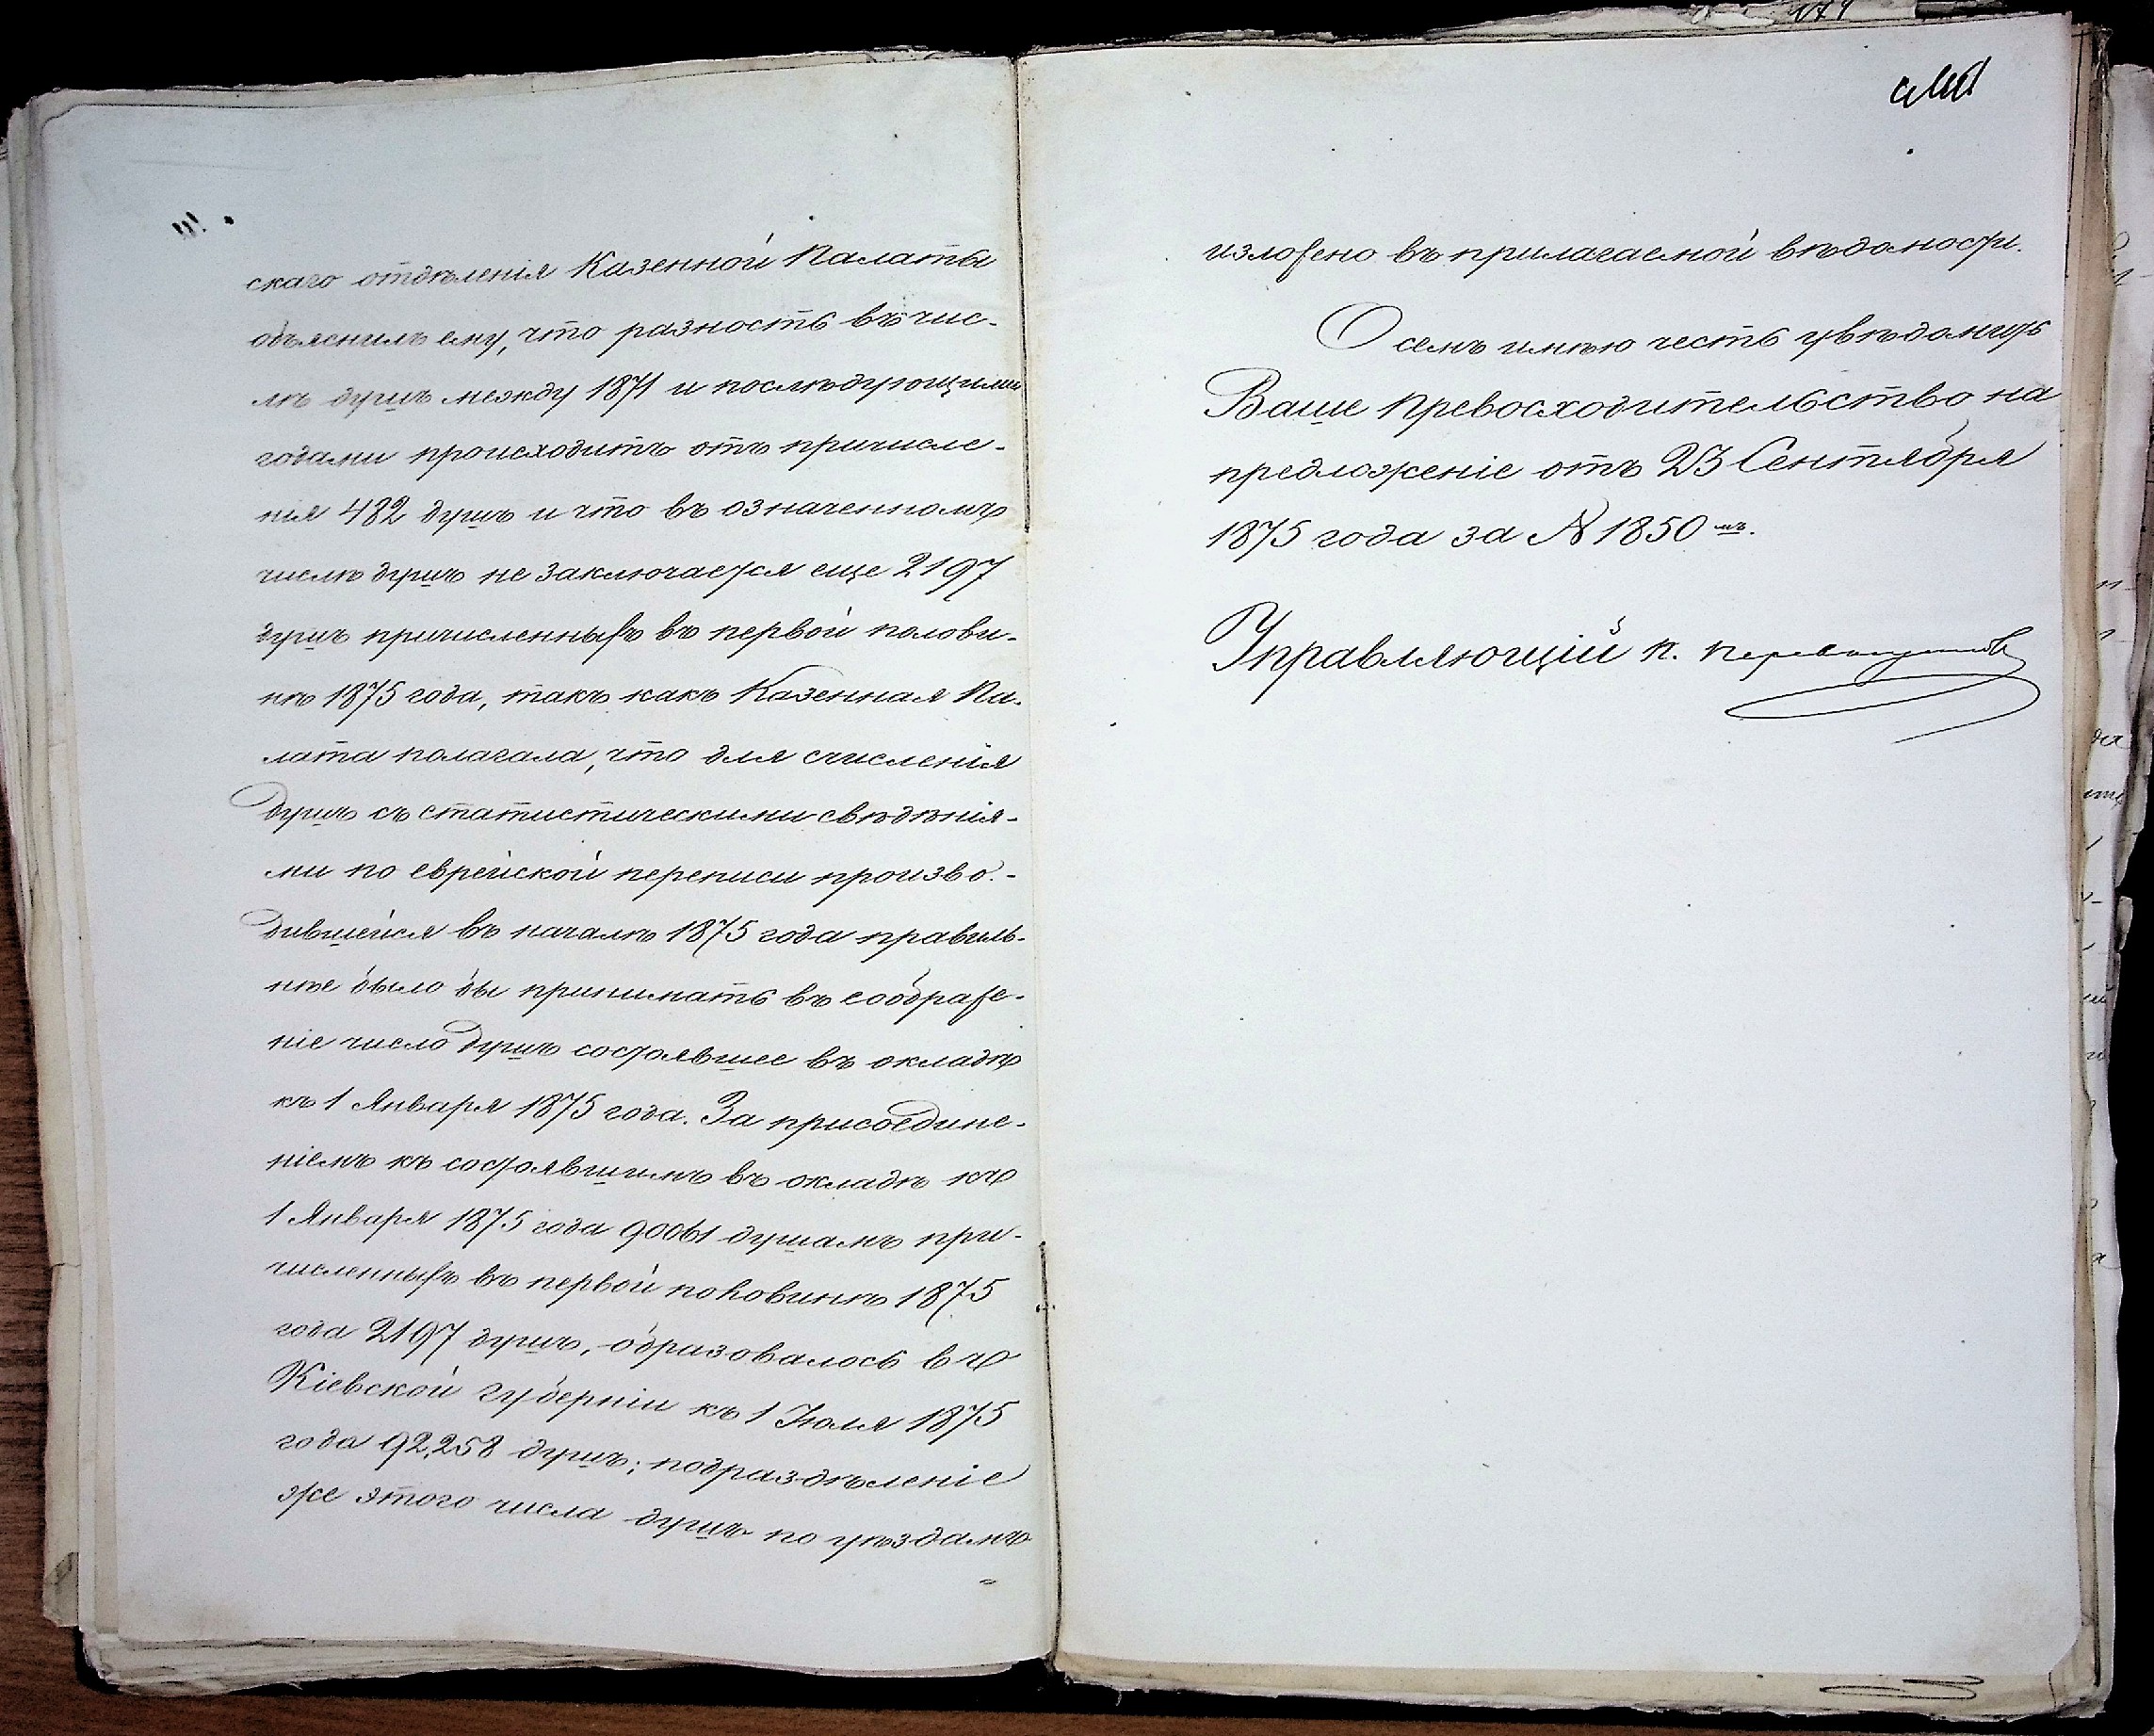 скаго отдѣленія Казенной Палаты
объяснилъ ему, что разность въ чис-
лѣ душъ между 1871 и послѣдующими
годами происходитъ отъ причисле-
нія 482 душъ и что въ означенномъ
числѣ душъ не заключается еще 2197
душъ причисленныхъ въ первой полови-
нѣ 1875 года, такъ какъ Казенная Па-
лата полагала, что для счисленія
душъ съ статистическими свѣдѣнія-
ми по еврейской переписи произво-
дившейся въ началѣ 1875 года правиль-
нѣе было бы принимать въ соображе-
ніе число душъ состоявшее въ окладѣ
къ 1 Января 1875 года. За присоедине-
ніемъ къ состоявшимъ въ окладѣ къ
1 Января 1875 года 90061 душамъ при-
численныхъ въ первой половинѣ 1875
года 2197 душъ, образовалось въ
Кіевской губерніи къ 1 Іюля 1875
года 92,258 душъ; подраздѣленіе
же этого числа душъ по уѣздамъ
изложено въ прилагаемой вѣдомости.
О семъ имѣю честь увѣдомить
Ваше Превосходительство на
предложеніе отъ 23 Сентября
1875 года за № 1850мъ.
Управляющій П.